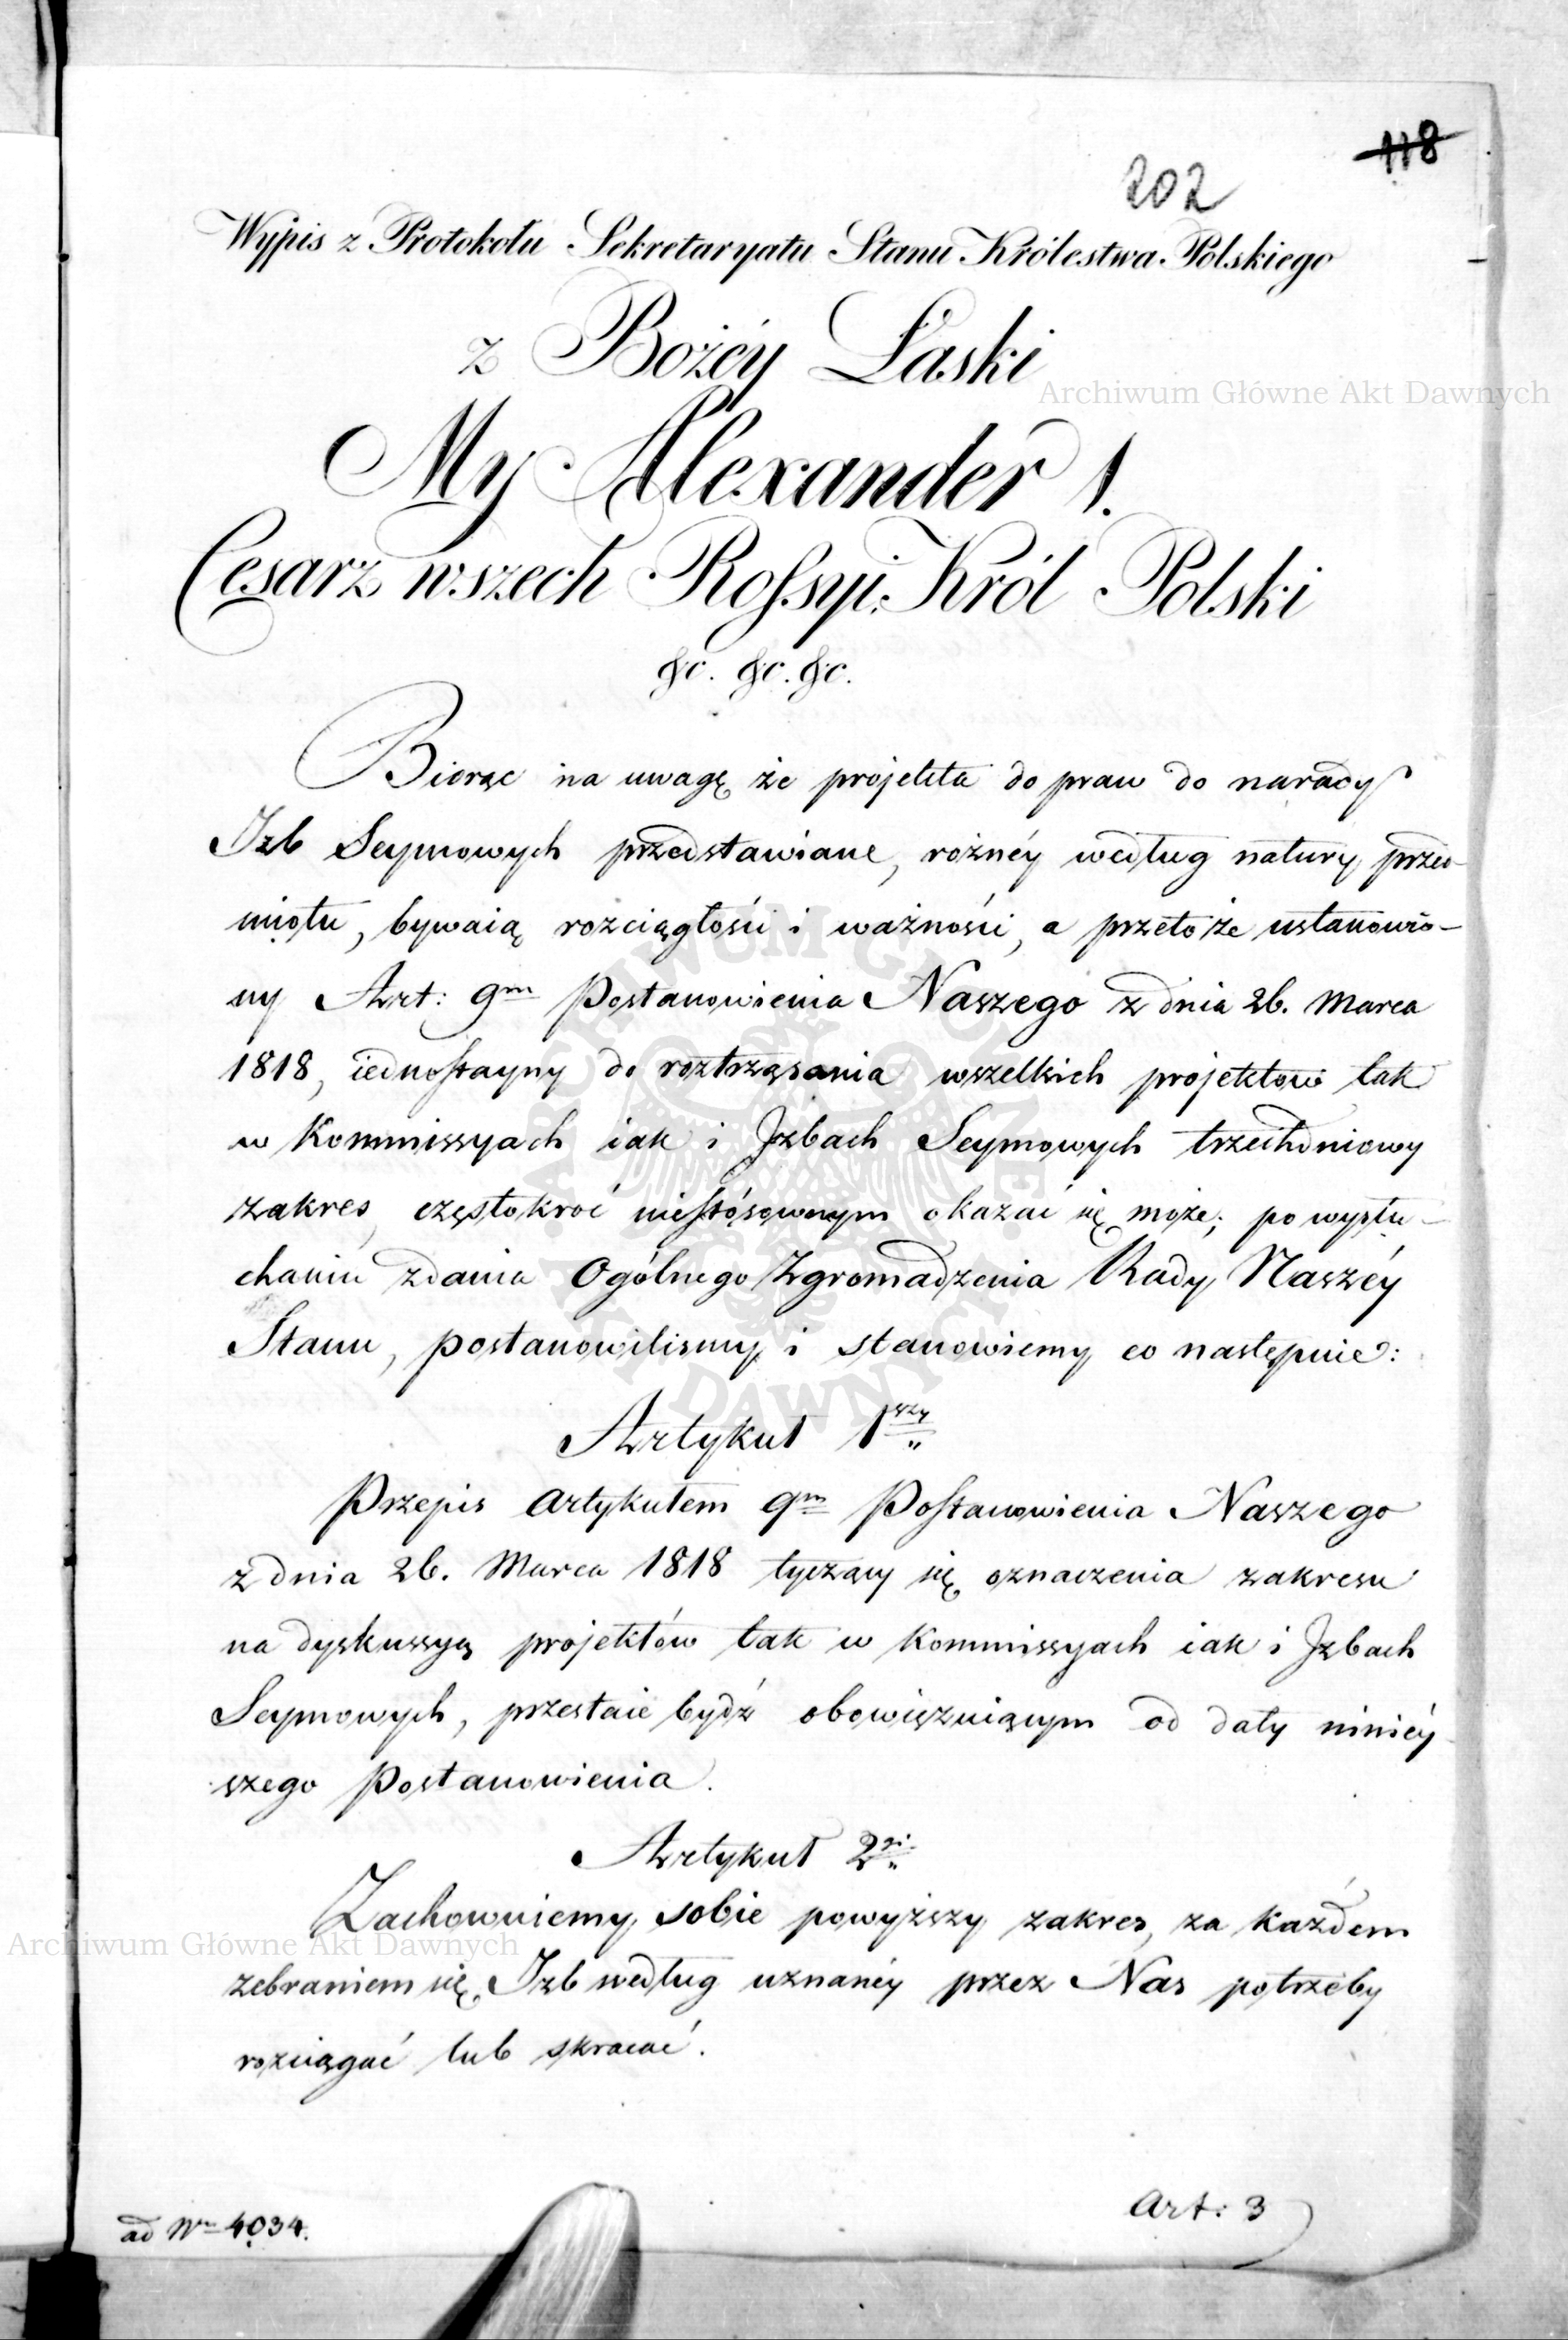 118
202
Wypis z Protokołu Sekretaryatu Stanu Królestwa Polskiego
z Bożéy Łaski
My Alexander I.
Cesarz wszech Rossyi, Król Polski
&c. &c. &c.
Biorąc na uwagę że projekta do praw do narady
Izb Seymowych przedstawiane, rożnéy według natury przed-
miotu, bywaią rozciągłości i ważności, a przeto że ustanowio-
ny Art: 9m Postanowienia Naszego z dnia 26. Marca
1818, iednostayny do roztrząsania wszelkich projektow tak
w Kommissyach iak i Izbach Seymowych trzechdniowy
zakres, częstokroć niestósownym okazać się może; po wysłu-
chaniu zdania Ogólnego Zgromadzenia Rady Naszéy
Stanu, postanowilismy i stanowiemy co następuie:
Artykuł 1szy
Przepis Artykułem 9m Postanowienia Naszego
z dnia 26. Marca 1818 tyczący się oznaczenia zakresu
na dyskussyą projektów tak w Kommissyach iak i Izbach
Seymowych, przestaie bydź obowięzuiącym od daty niniéy
szego Postanowienia.
Artykuł 2gi
Zachowuiemy sobie powyższy zakres, za każdem
zebraniem się Izb według uznanéy przez Nas potrzeby
rozciągać lub skracać.
Art: 3
ad Nr 4034.
Archiwum Główne Akt Dawnych
Archiwum Główne Akt Dawnych
ARCHIWUM GŁÓWNE AKT DAWNYCH